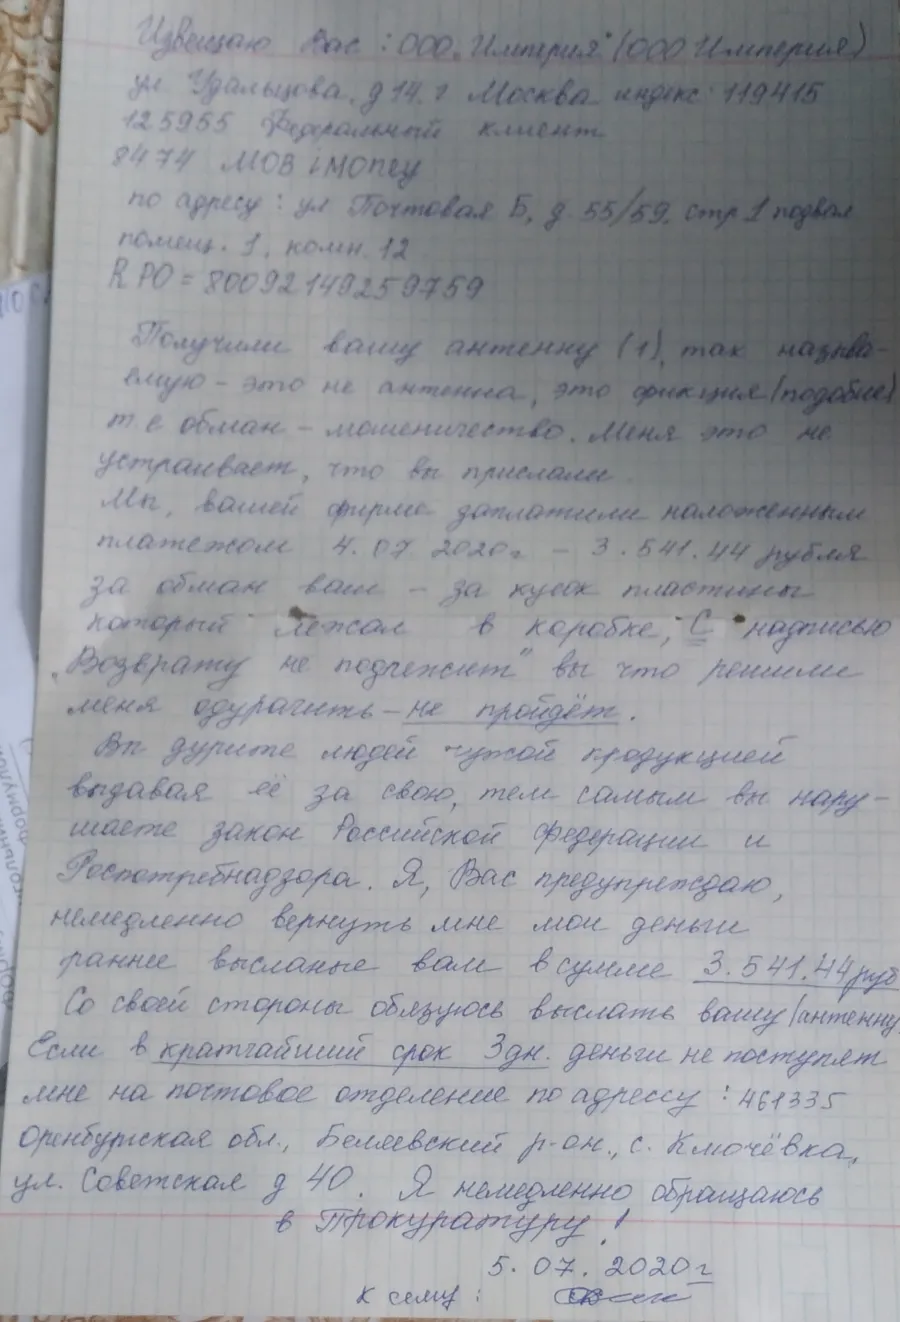 Извещаю Вас: ООО "Империя" (ООО Империя)
ул. Удальцова, д 14. г Москва индекс: 119415
125955 Федеральный клиент
8474 MOBiMoney
по адресу: ул Почтовая Б, д. 55/59, стр 1 подвал
помещ. 1, комн. 12
RPO = 80092149259759
Получили вашу антенну (1), так называ-
емую - это не антенна, это фикция (подобие)
т.е обман - мошеничество. Меня это не
устраивает, что вы прислали.
Мы, вашей фирме заплатили наложенным
платежом 4.07 2020г - 3.541.44 рубля
за обман ваш - за кусок пластины
который лежал в коробке, С надписью
"Возврату не подлежит" вы что решили
меня одурачить - не пройдёт.
Вы дурите людей чужой продукцией
выдавая её за свою, тем самым вы нару-
шаете закон Российской Федерации и
Роспотребнадзора. Я, Вас предупреждаю,
немедленно вернуть мне мои деньги
раннее высланые вам в сумме 3.541.44 руб
Со своей стороны обязуюсь выслать вашу/антенну
Если в кратчайший срок 3дн. деньги не поступят
мне на почтовое отделение по адрессу: 461335
Оренбургская обл., Беляевский р-он., с. Ключёвка,
ул. Советская д 40. Я немедленно обращаюсь
в Прокуратуру!
5.07.2020г
К сему: